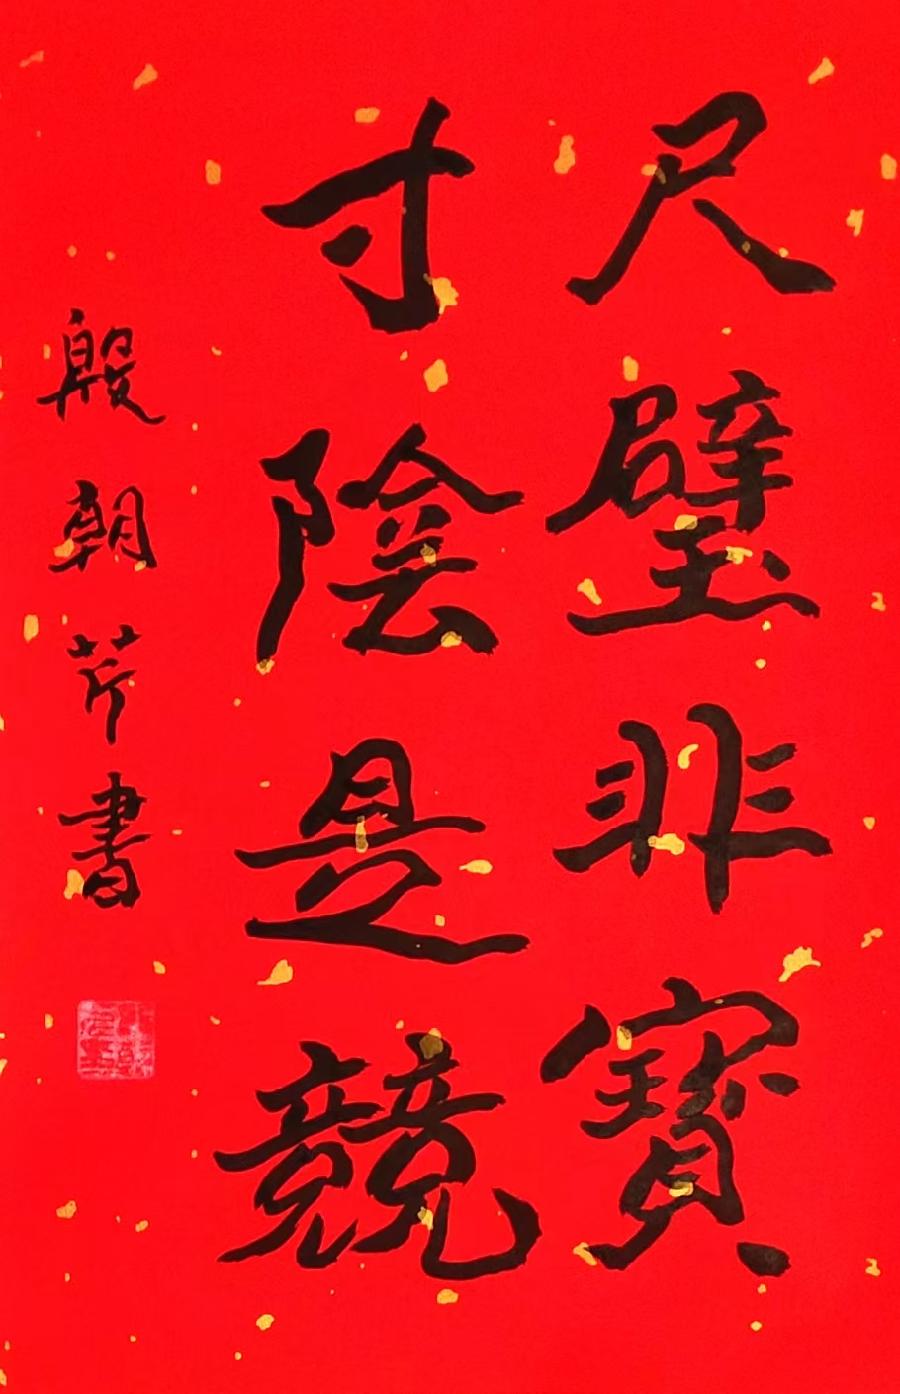 尺璧非寶
寸陰是競
殷朝芹書